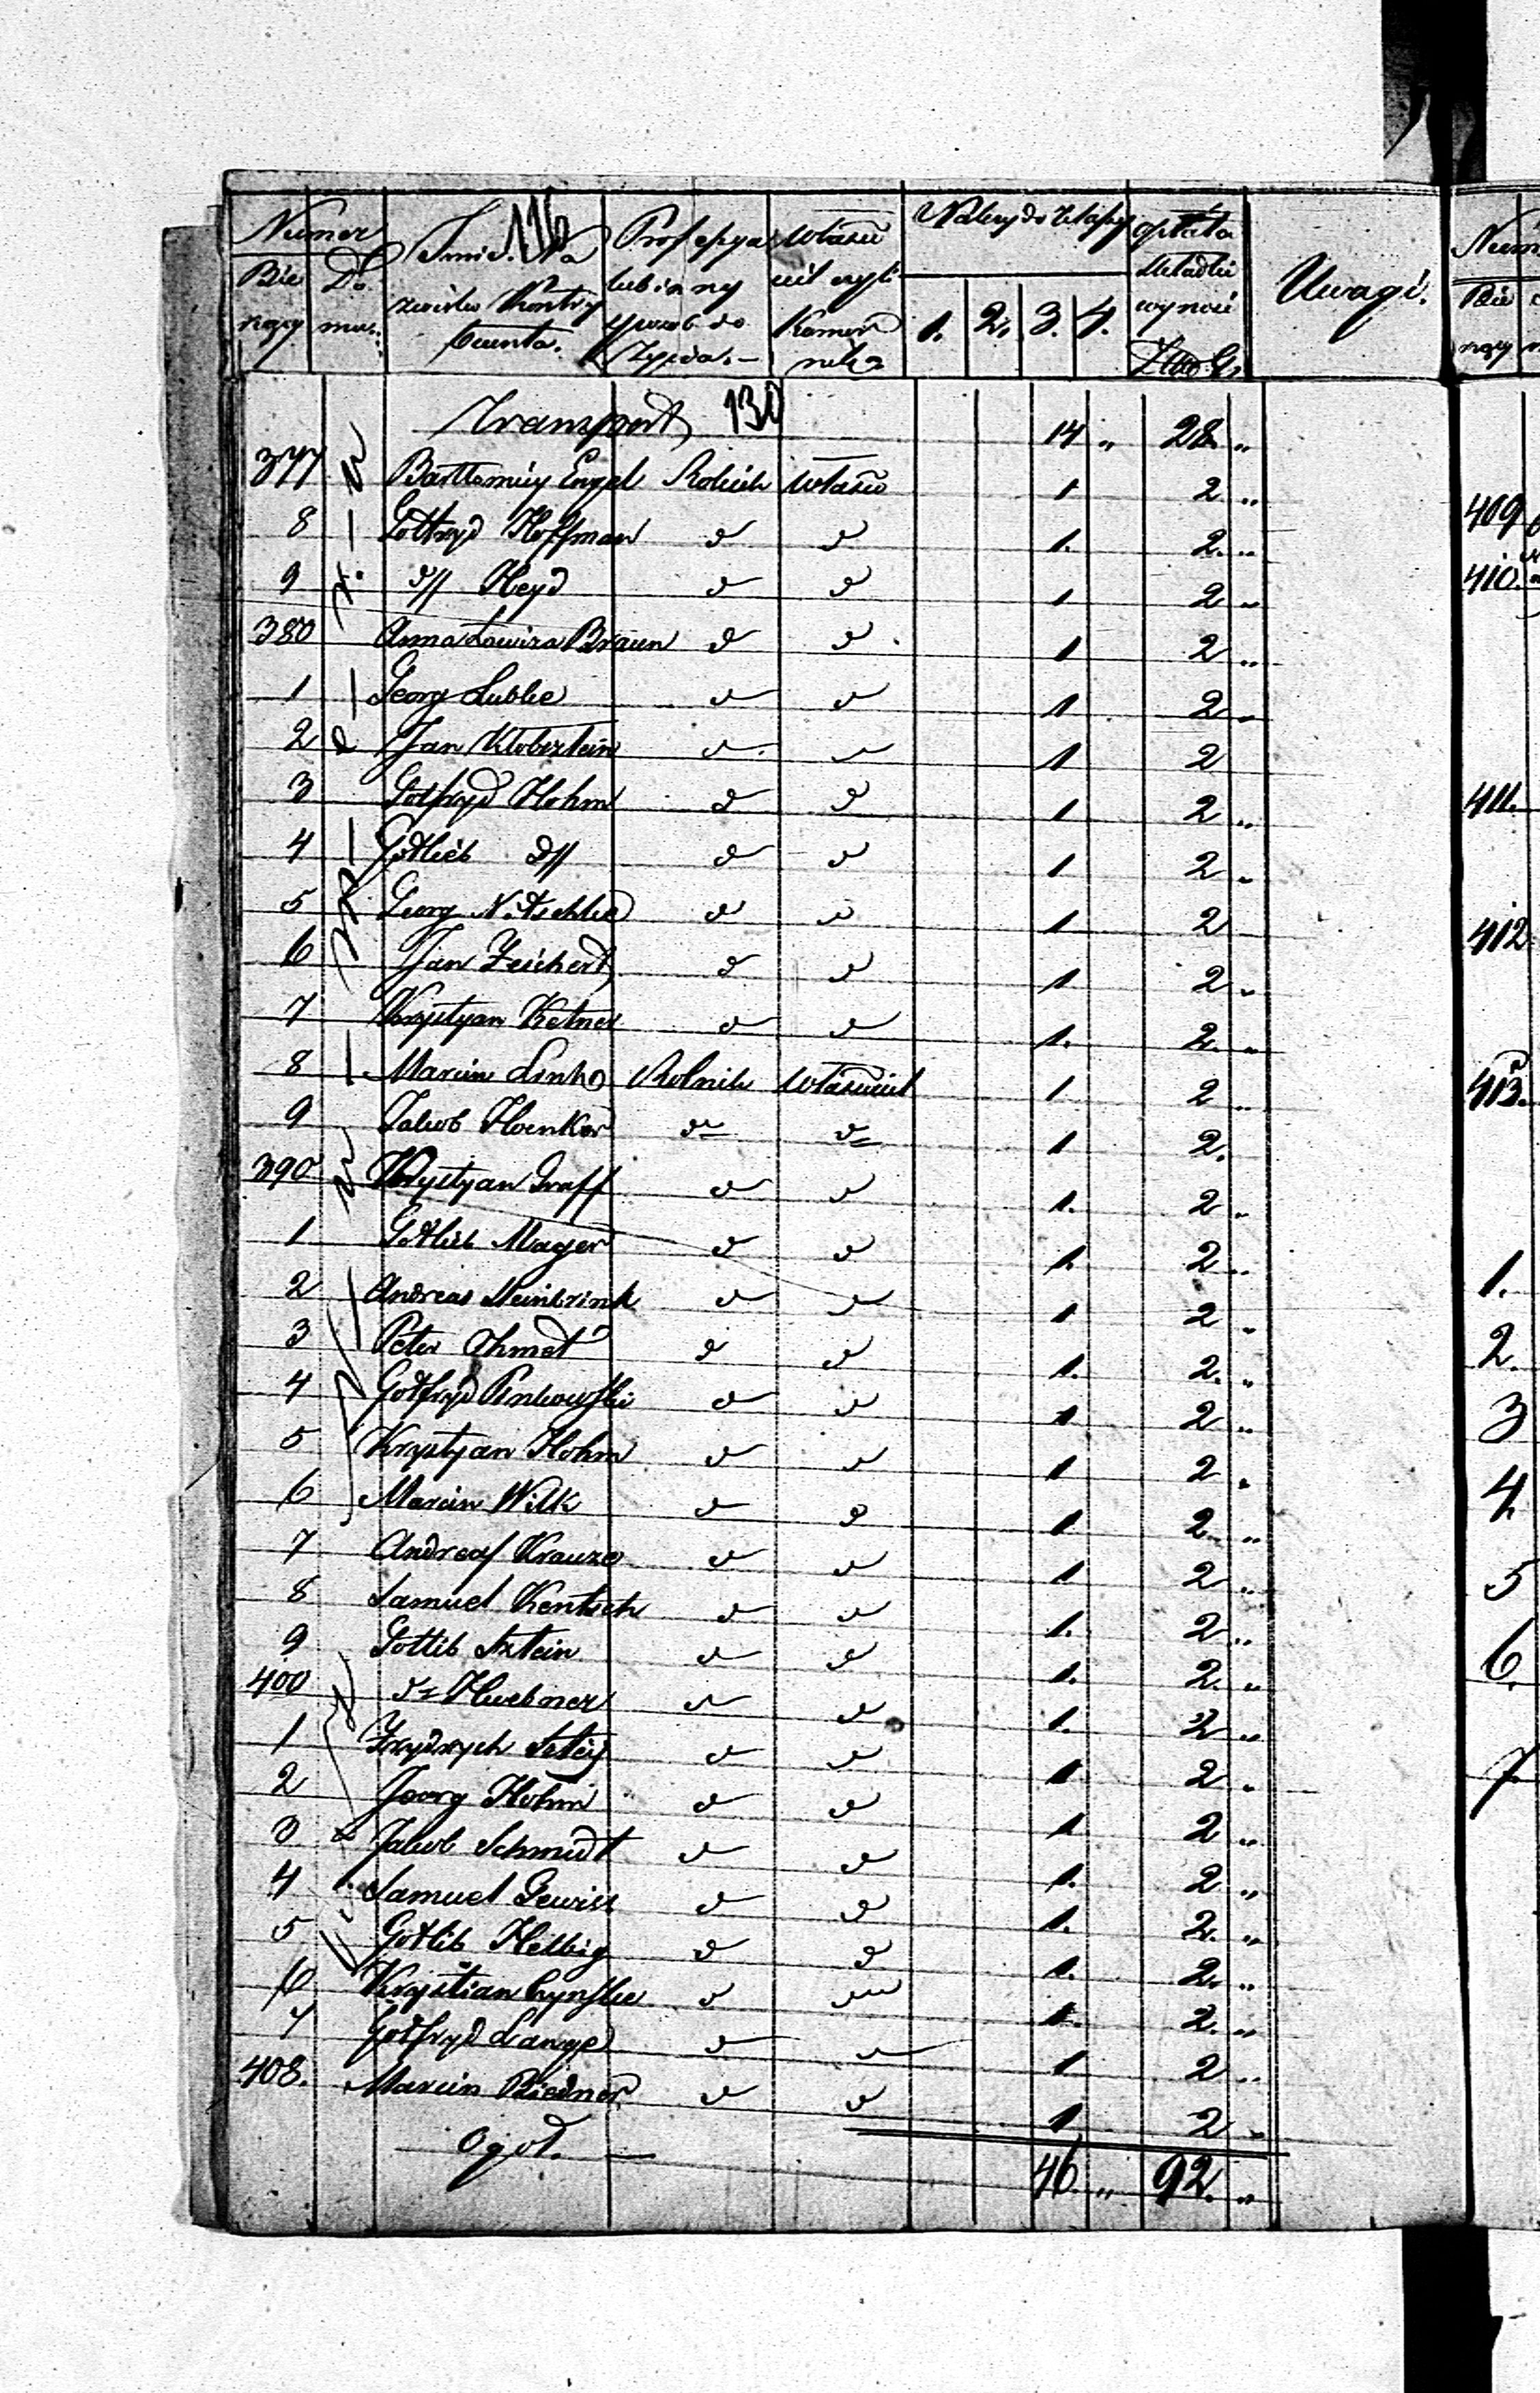 116
Numer
Bie
Do
Imie. Na
Professya
Własci
Należy do Klassy
opłata
żący
mu.
zwisko Kontry
lub inny
ciel czyli
Składki
buenta.
sposob do
Komor
1. 2. 3. 4.
wynosi
Uwagi.
Życia.
nik
Złto Gr
Transport 130 14 „ 28. „
377 Bartłomiey Engel Rolnik Własci 1 2 „
8 Gottfryd Hoffman d d 1. 2. „
9 d// Heyd d d 1 2 „
380 Anna Lowiza Braun d d 1 2 „
1 Georg Lubke d d 1 2 „
2 Jan Klobsztein d 1 2
3 Gotfryd Hohm d d 1 2 „
4 Gotlieb d// d d 1 2 „
5 Georg Nitschke d d 1 2
6 Jan Zeichert d d 1 2 „
7 Krystyan Ketner d d 1. 2. „
8 Marcin Link Rolnik Własciciel 1. 2 „
9 Jakob Hoenker d d 1 2.
390 Krystyan Graff d d 1. 2 „
1 Gotlieb Mager d d 1. 2 „
2 Andreas Steinbrink d d 1 2 „
3 Peter d d 1. 2. „
4 Gotfryd Penkowski d d 1 2 „
5 Krystyan Hohm d d 1 2 „
6 Marcin Wilk d d 1 2 „
7 Andreas Krauze d d 1 2 „
8 Samuel Kentsch d d 1. 2 „
9 Gottlib Sztein d d 1. 2. „
400 d Huebner d d 1. 2 „
1 Frydrych d d 1 2 „
2 Georg Hohm d d 1 2 „
3 Jakob Schmidt d d 1. 2 „
4 Samuel Gewiss d d 1. 2. „
5 Gotlib Helbig d d 1. 2. „
6 Krystian d d 1. 2. „
7 Gotfryd Lange d 1 2 „
408. Marcin Biedner d d 1 2 „
Ogoł. 46. „ 92. „
Num
Bie
żący
409
410.
411.
412
413.
1.
2.
3
4
5
6.
7